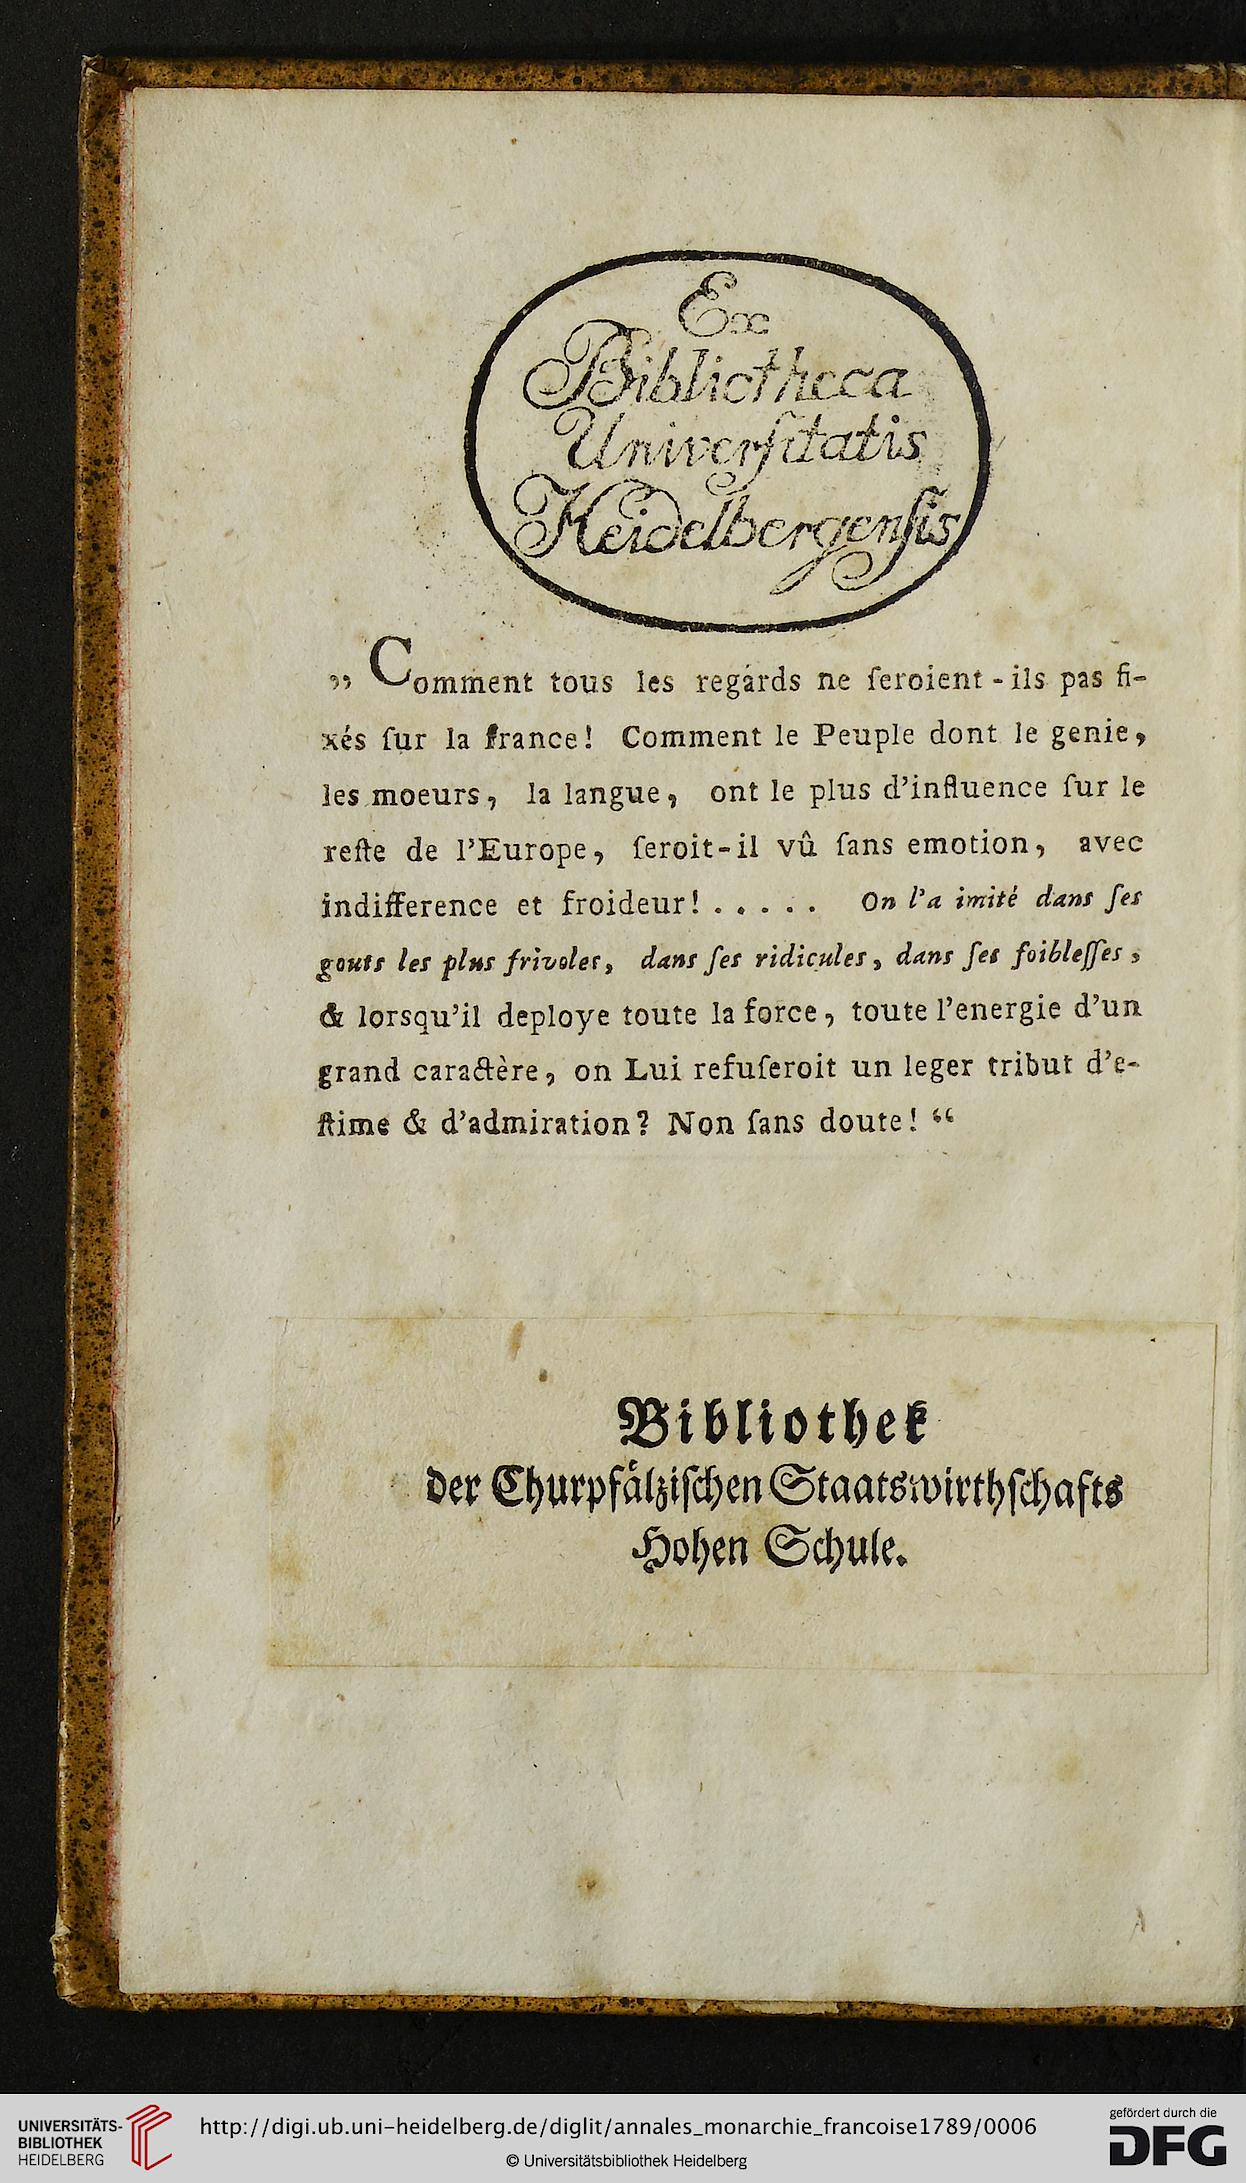 Ex
Bibliotheca
Univerſitatis
Heidelbergenſis
„ Comment tous les regards ne ſeroient-ils pas fi-
xés ſur la france! Comment le Peuple dont le genie,
les moeurs, la langue, ont le plus d'influence ſur le
reſte de l'Europe, ſeroit-il vû ſans emotion, avec
indifference et froideur! . . . . . On l'a imité dans ſes
gouts les plus frivoles, dans ſes ridicules, dans ſes foibleſſes,
& lorsqu'il deploye toute la force, toute l'energie d'un
grand caractère, on Lui refuſeroit un leger tribut d'e-
ſtime & d'admiration? Non ſans doute! “
Bibliothek
der Churpfälziſchen Staatswirthſchafts
Hohen Schule.
UNIVERSITÄTS-
BIBLIOTHEK
HEIDELBERG
http://digi.ub.uni-heidelberg.de/diglit/annales_monarchie_francoise1789/0006
© Universitätsbibliothek Heidelberg
gefördert durch die
DFG